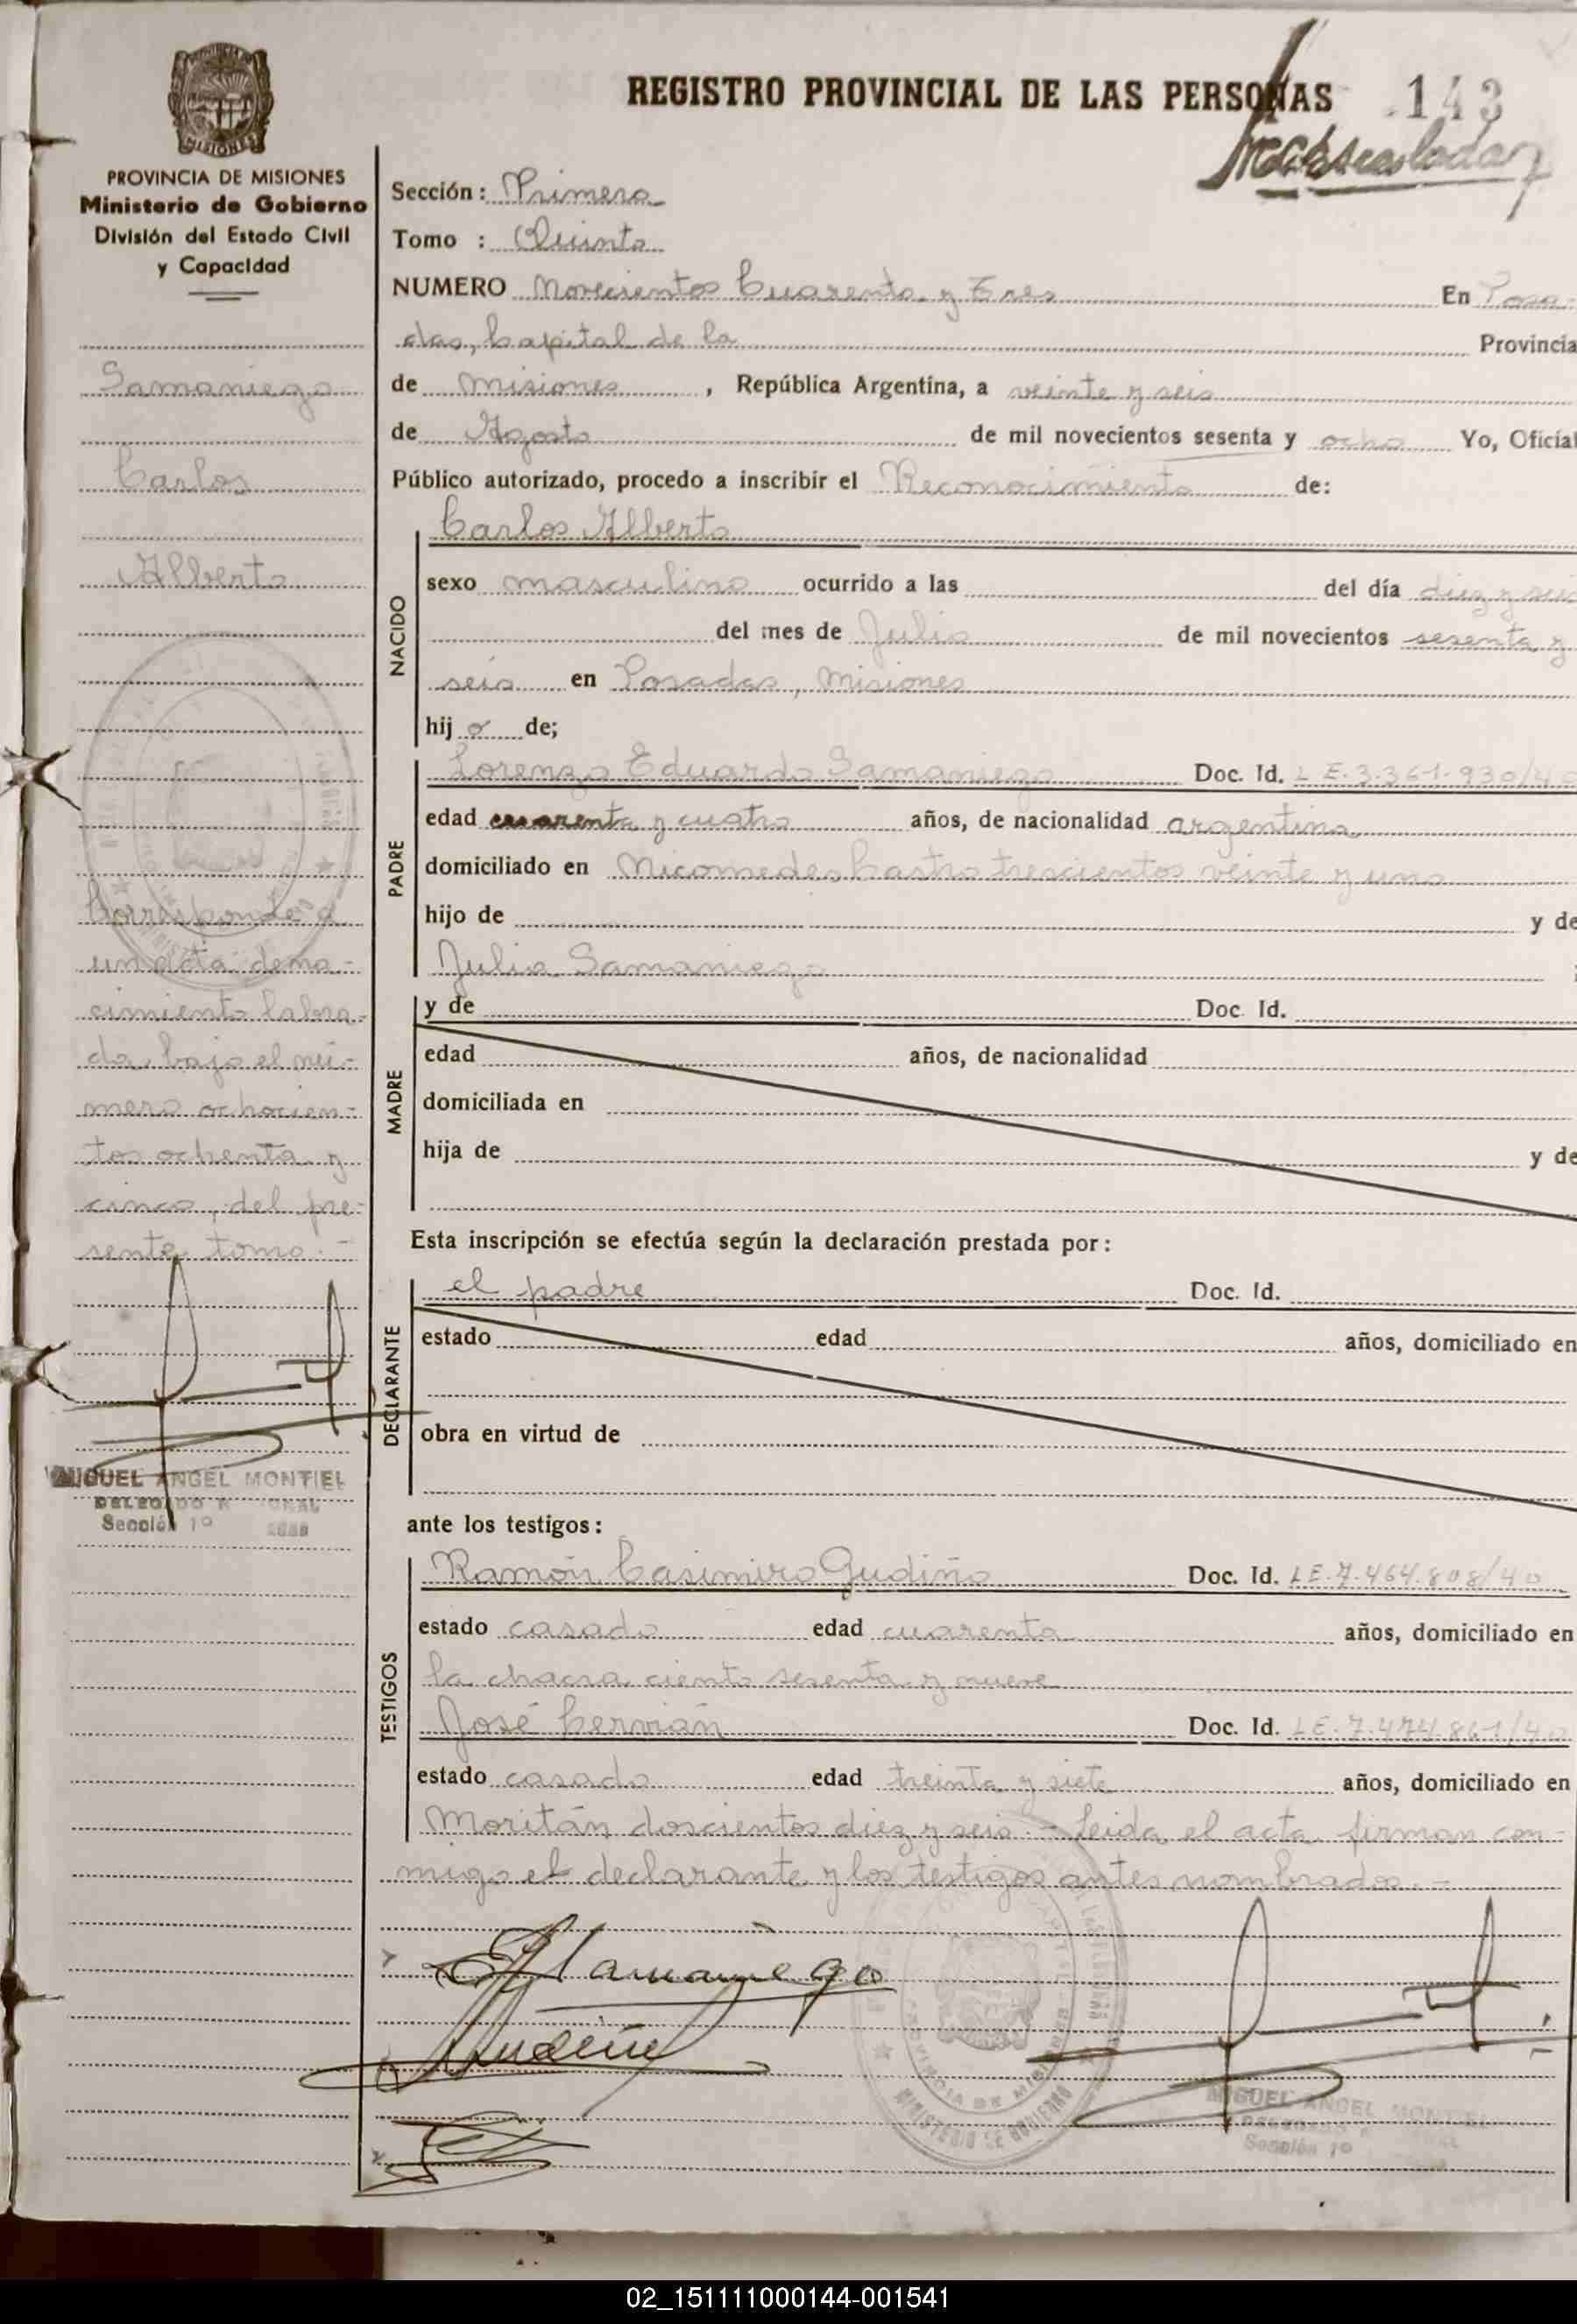 REGISTRO PROVINCIAL DE LAS PERSONAS 143
PROVINCIA DE MISIONES
Ministerio de Gobierno
División del Estado Civil
y Capacidad
Samaniego
Carlos
Alberto
Corresponde a
un acta de na-
cimiento labra-
da bajo el nú-
mero ochocien-
tos ochenta y
cinco, del pre-
sente tomo.-
MIGUEL ANGEL MONTIEL
DELEGADO
Sección 1º
Sección: Primera
Tomo : Quinto
NUMERO Novecientos Cuarenta y Tres En Posa-
das, Capital de la Provincia
de Misiones, República Argentina, a veinte y seis
de Agosto de mil novecientos sesenta y ocho Yo, Oficial
Público autorizado, procedo a inscribir el Reconocimiento de:
NACIDO
Carlos Alberto
sexo masculino ocurrido a las del día diez y seis
del mes de Julio de mil novecientos sesenta y
seis en Posadas, Misiones
hijo de;
PADRE
Lorenzo Eduardo Samaniego Doc. Id. L E.3.361.930/40
edad cuarenta y cuatro años, de nacionalidad argentina
domiciliado en Nicomedes Castro trescientos veinte y uno
hijo de y de
Julia Samaniego
MADRE
y de Doc. Id.
edad años, de nacionalidad
domiciliada en
hija de y de
Esta inscripción se efectúa según la declaración prestada por:
DECLARANTE
el padre Doc. Id.
estado edad años, domiciliado en
obra en virtud de
ante los testigos:
TESTIGOS
Ramón Casimiro Gudiño Doc. Id. LE.7.464.808/40
estado casado edad cuarenta años, domiciliado en
la chacra ciento sesenta y nueve
José Cervián Doc. Id. LE.7.474.861/40
estado casado edad treinta y siete años, domiciliado en
Moritán doscientos diez y seis.- Leida el acta firman con-
migo el declarante y los testigos antes nombrados.-
Samaniego
Gudiño
MINISTERIO DE GOBIERNO
PROVINCIA DE MISIONES
MIGUEL ANGEL MONTIEL
Sección 1º
02_151111000144-001541